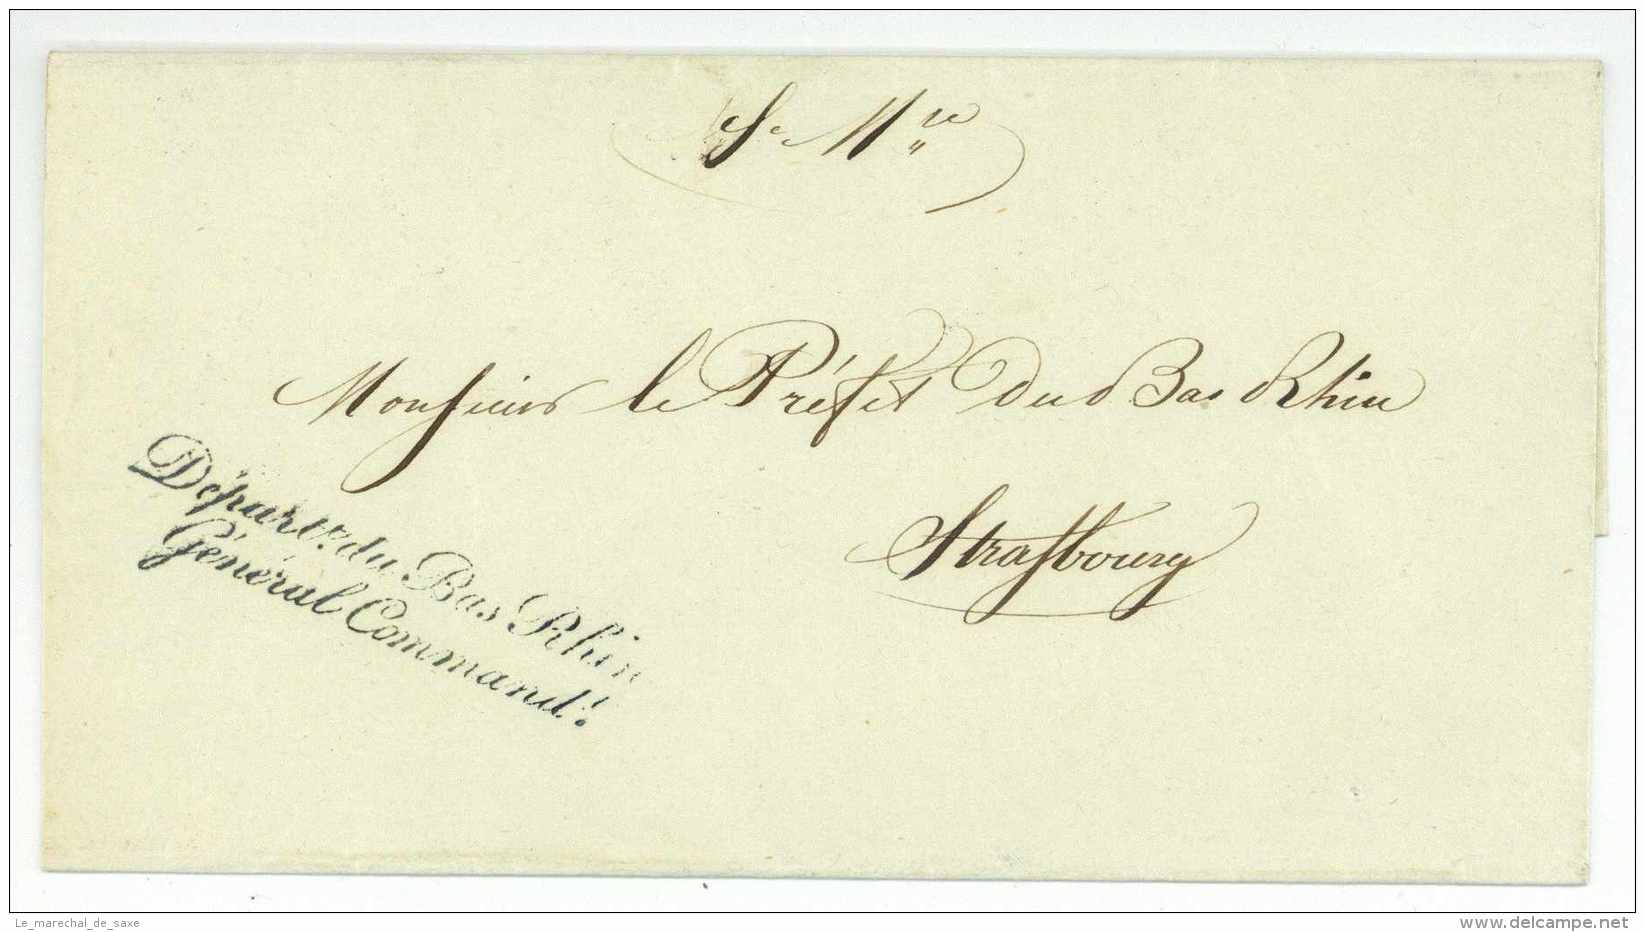 Se Mre
Monsieur le Préfet du Bas Rhin
Strasbourg
Départt. du Bas Rhin
Général Commandt.
Le_marechal_de_saxe
www.delcampe.net